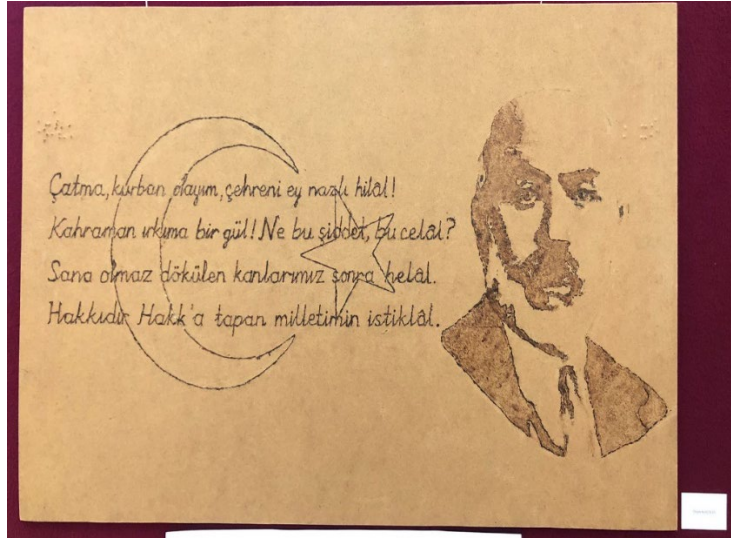 Çatma, kurban olayım, çehreni ey nazlı hilâl!
Kahraman ırkıma bir gül! Ne bu şiddet, bu celâl?
Sana olmaz dökülen kanlarımız sonra helâl.
Hakkıdır Hakk'a tapan milletimin istiklâl.